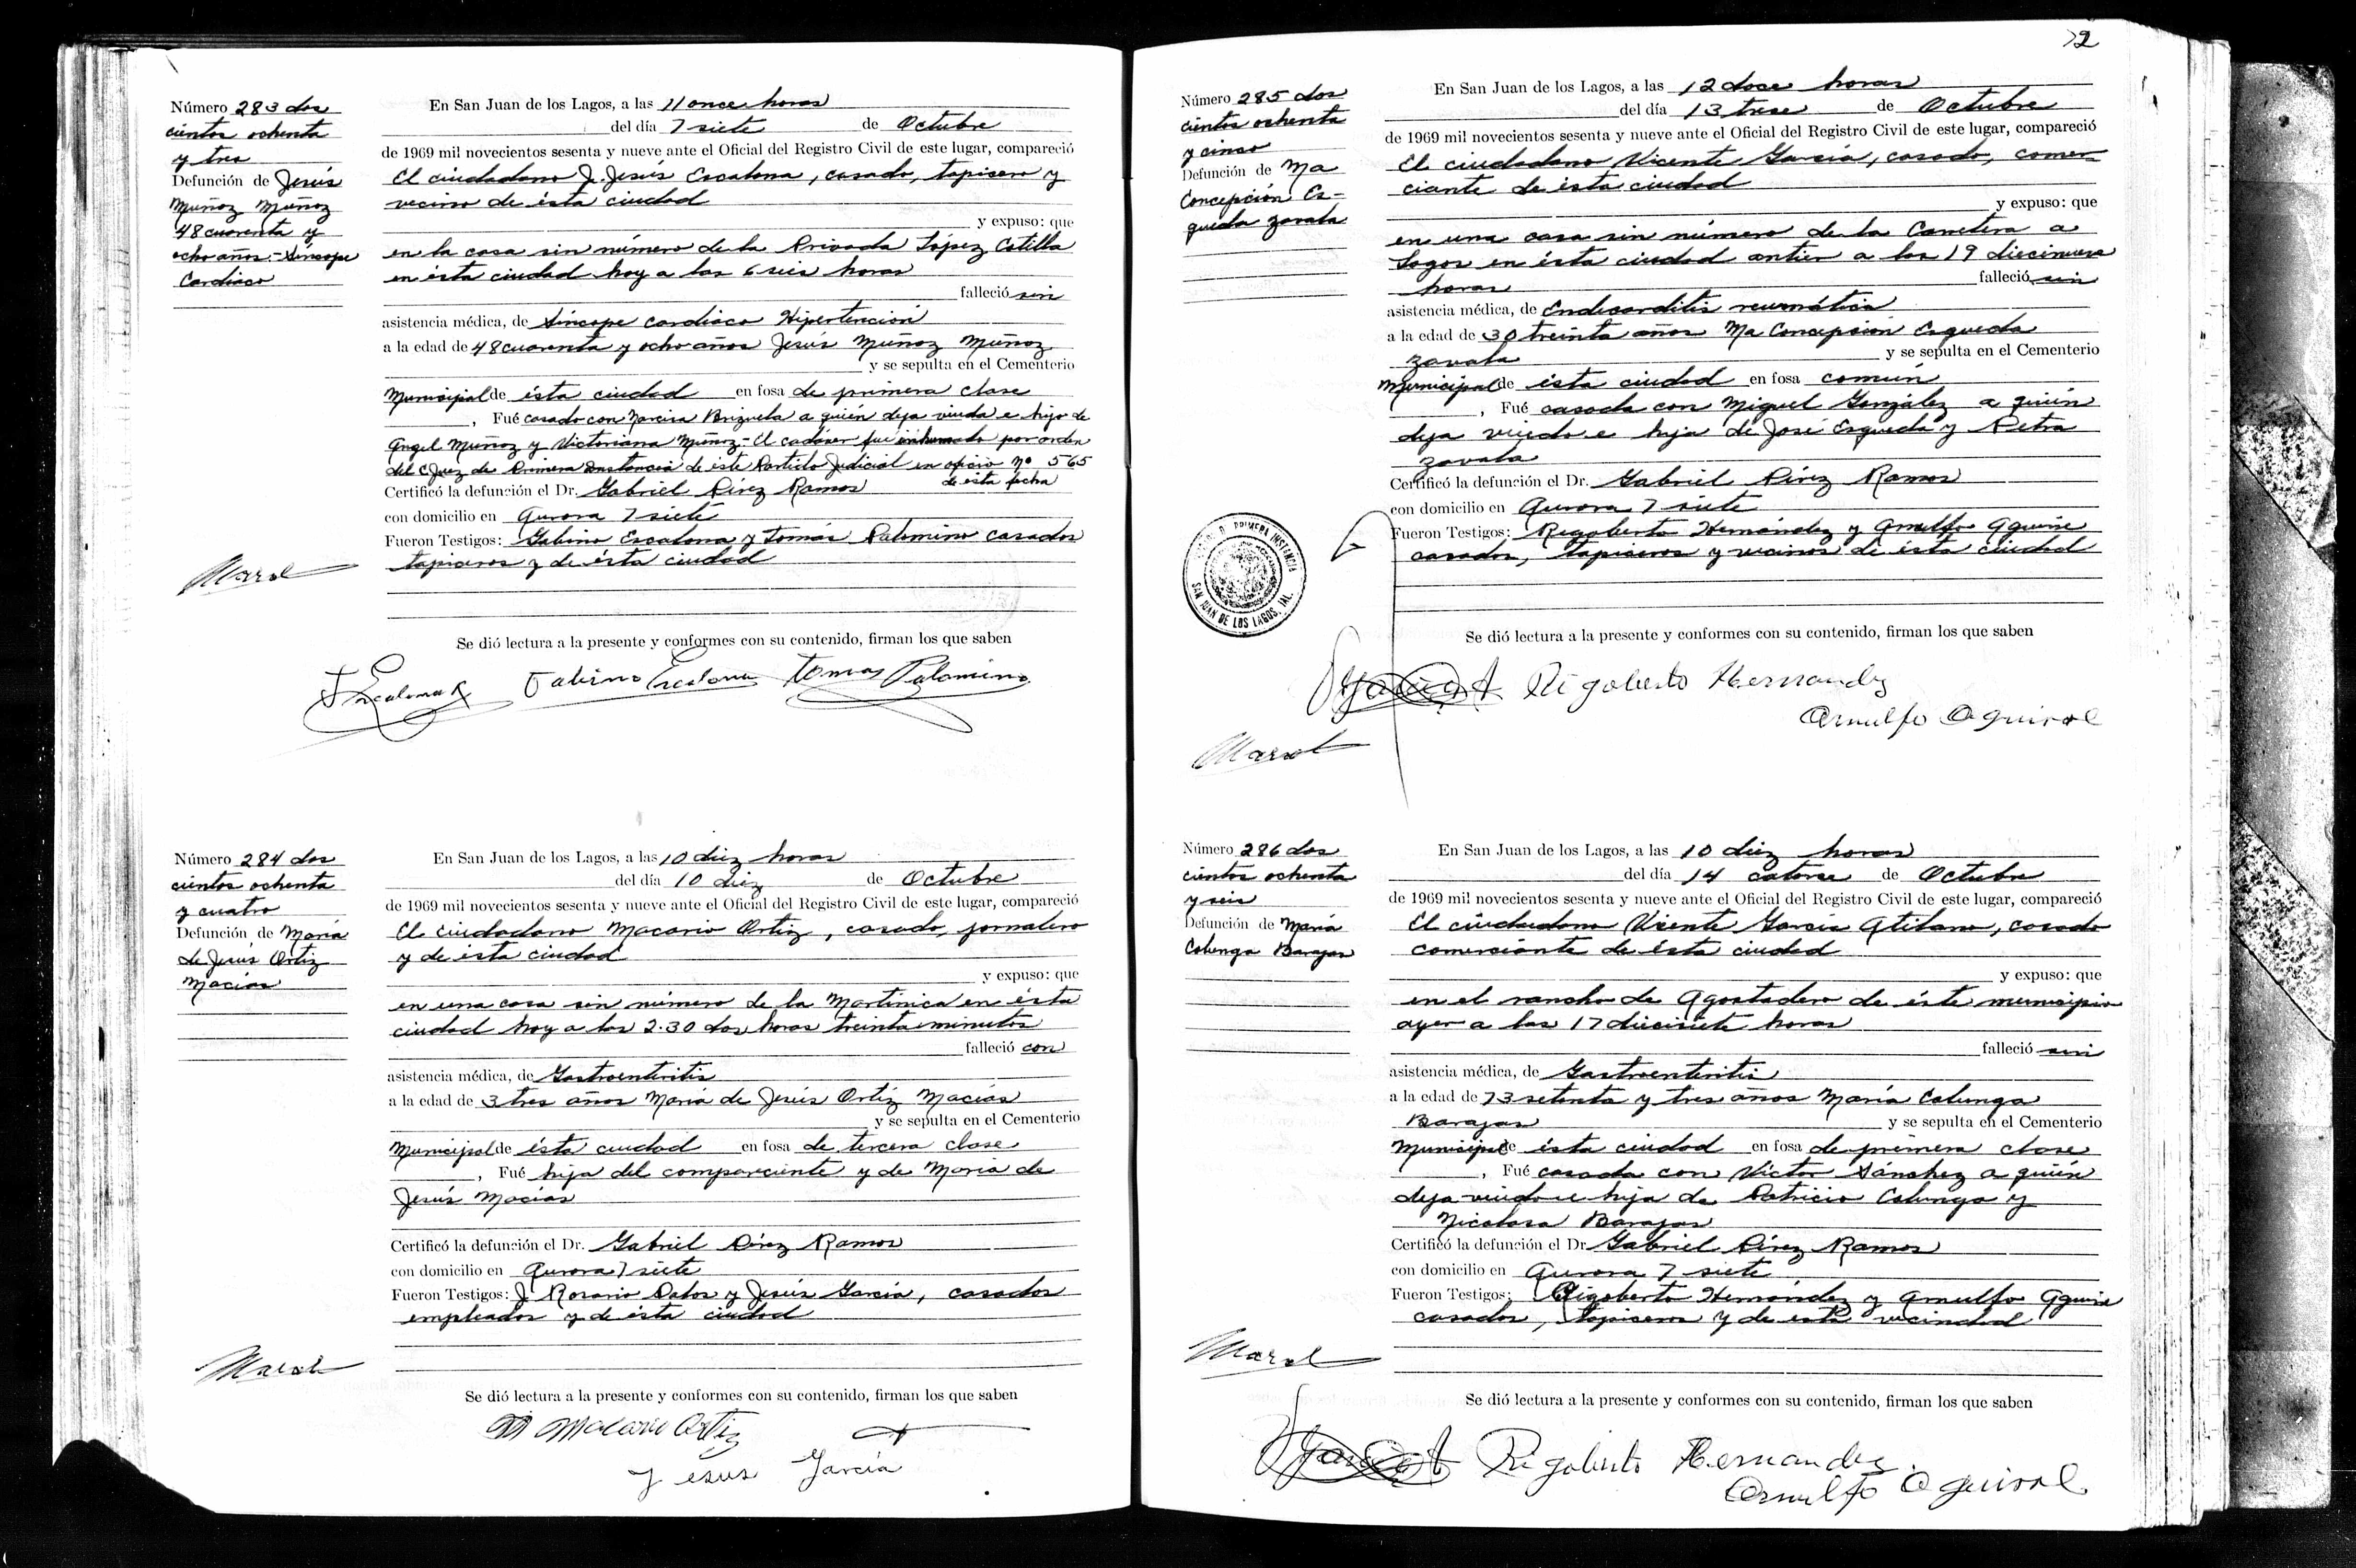 Número 283 dos
cientos ochenta
y tres
Defunción de Jesús
Muñoz Muñoz
48 cuarenta y
ocho años.- Síncope
Cardiaco
En San Juan de los Lagos, a las 11 once horas
del día 7 siete de Octubre
de 1969 mil novecientos sesenta y nueve ante el Oficial del Registro Civil de este lugar, compareció
El ciudadano J. Jesús Escalona, casado, tapicero y
vecino de ésta ciudad
y expuso: que
en la casa sin número de la Privada López Cotilla
en ésta ciudad hoy a las 6 seis horas
falleció sin
asistencia médica, de Síncope cardiaco Hipertención
a la edad de 48 cuarenta y ocho años Jesús Muñoz Muñoz
y se sepulta en el Cementerio
Municipal de ésta ciudad en fosa de primera clase
, Fué casado con Narcisa Brizuela a quién deja viuda e hijo de
Angel Muñoz y Victoriana Muñoz.- El cadáver fué inhumado por orden
del C Juez de Primera Instancia de éste Partido Judicial en oficio No 565
de ésta fecha
Certificó la defunción el Dr. Gabriel Pérez Ramos
con domicilio en Aurora 7 siete
Fueron Testigos: Gabino Escalona y Tomás Palomino casados
tapiceros y de ésta ciudad
Se dió lectura a la presente y conformes con su contenido, firman los que saben
J Escalona R Gabino Escalona Tomas Palomino
Número 284 dos
cientos ochenta
y cuatro
Defunción de María
de Jesús Ortiz
Macías
En San Juan de los Lagos, a las 10 diez horas
del día 10 diez de Octubre
de 1969 mil novecientos sesenta y nueve ante el Oficial del Registro Civil de este lugar, compareció
El ciudadano Macario Ortiz, casado, jornalero
y de ésta ciudad
y expuso: que
en una casa sin número de la Martinica en ésta
ciudad hoy a las 2.30 dos horas treinta minutos
falleció con
asistencia médica, de Gastroenteritis
a la edad de 3 tres años María de Jesús Ortiz Macías
y se sepulta en el Cementerio
Municipal de ésta ciudad en fosa de tercera clase
, Fué hija del compareciente y de María de
Jesús Macías
Certificó la defunción el Dr. Gabriel Pérez Ramos
con domicilio en Aurora 7 siete
Fueron Testigos: J Rosario Pados y Jesús García, casados
empleados y de ésta ciudad
Se dió lectura a la presente y conformes con su contenido, firman los que saben
Macario Ortiz
Jesus García
72
Número 285 dos
cientos ochenta
y cinco
Defunción de Ma
Concepción Es-
queda Zavala
En San Juan de los Lagos, a las 12 doce horas
del día 13 trece de Octubre
de 1969 mil novecientos sesenta y nueve ante el Oficial del Registro Civil de este lugar, compareció
El ciudadano Vicente García, casado, comer
ciante de ésta ciudad
y expuso: que
en una casa sin número de la Carretera a
Lagos en ésta ciudad antier a las 19 diecinueve
horas falleció sin
asistencia médica, de Endocarditis reumática
a la edad de 30 treinta años Ma Concepción Esqueda
Zavala y se sepulta en el Cementerio
Municipal de ésta ciudad en fosa común
, Fué casada con Miguel González a quién
deja viudo e hija de José Esqueda y Petra
Zavala
Certificó la defunción el Dr. Gabriel Pérez Ramos
con domicilio en Aurora 7 siete
Fueron Testigos: Rigoberto Hernández y Arnulfo Aguirre
casados, tapiceros y vecinos de ésta ciudad
PRIMERA INSTANCIA
SAN JUAN DE LOS LAGOS, JAL.
Se dió lectura a la presente y conformes con su contenido, firman los que saben
Rigoberto Hernandez
Arnulfo Aguirre
Número 286 dos
cientos ochenta
y seis
Defunción de María
Colunga Barajas
En San Juan de los Lagos, a las 10 diez horas
del día 14 catorce de Octubre
de 1969 mil novecientos sesenta y nueve ante el Oficial del Registro Civil de este lugar, compareció
El ciudadano Vicente García Atilano, casado
comerciante de ésta ciudad
y expuso: que
en el rancho de Agostadero de éste municipio
ayer a las 17 diecisiete horas
falleció sin
asistencia médica, de Gastroenteritis
a la edad de 73 setenta y tres años María Colunga
Barajas y se sepulta en el Cementerio
Municipal de ésta ciudad en fosa de primera clase
, Fué casada con Víctor Sánchez a quién
deja viudo e hija de Patricio Colunga y
Nicolasa Barajas
Certificó la defunción el Dr. Gabriel Pérez Ramos
con domicilio en Aurora 7 siete
Fueron Testigos: Rigoberto Hernández y Arnulfo Aguirre
casados, tapiceros y de ésta vecindad
Se dió lectura a la presente y conformes con su contenido, firman los que saben
Rigoberto Hernandez
Arnulfo Aguirre